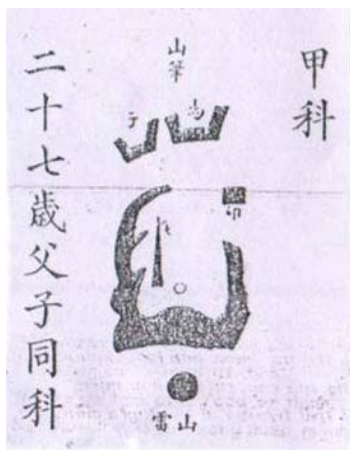 甲科
山筆
子
印
雷山
二十七歲父子同科